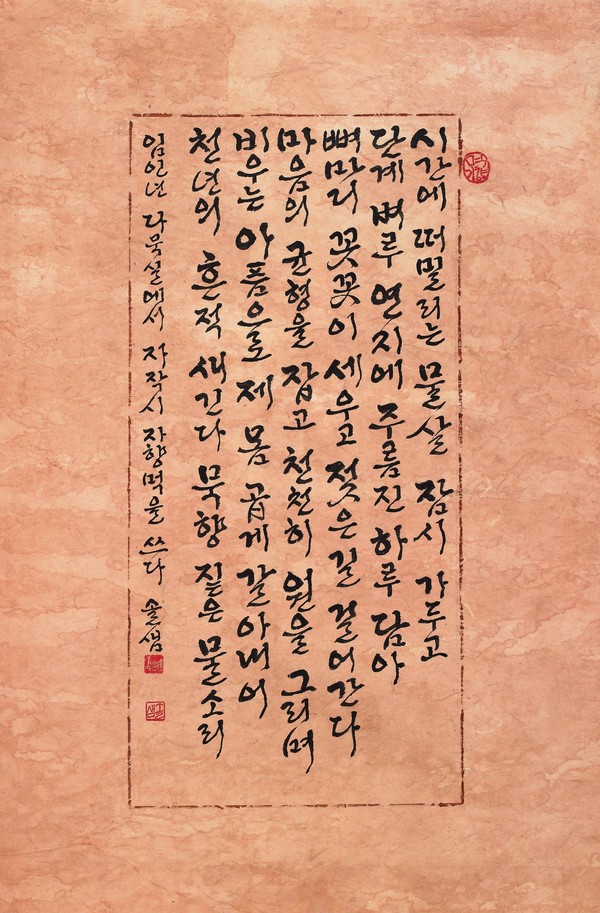 시간에 떠밀리는 물살 잠시 가두고
단계 벼루 연지에 주름진 하루 담아
뼈마디 꼿꼿이 세우고 젖은 길 걸어간다
마음의 균형을 잡고 천천히 원을 그리며
비우는 아픔으로 제 몸 곱게 갈아내어
천년의 흔적 새긴다 묵향 짙은 물소리
임인년 다묵실에서 자작시 자향먹을 쓰다 솔샘